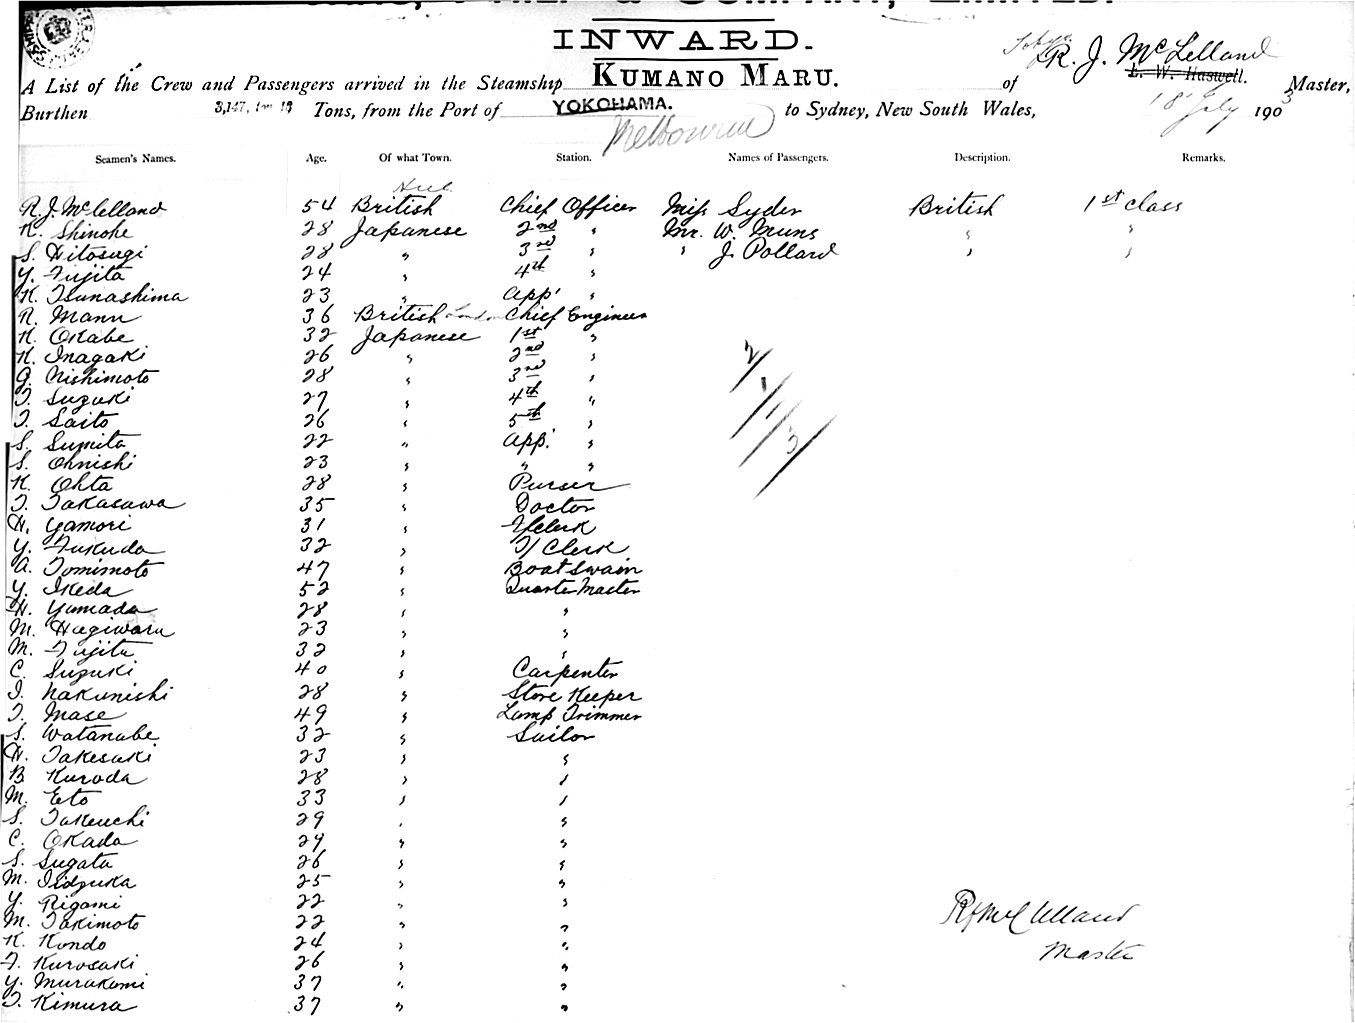 INWARD.
A List of the Crew and Passengers arrived in the Steamship KUMANO MARU. of R. J. McLelland E. W. Haswell. Master,
Burthen 3,147, Tons, from the Port of YOKOHAMA. Melbourne to Sydney, New South Wales, 18 July 1903
Seamen's Names. Age. Of what Town. Station. Names of Passengers. Description. Remarks.
R. J. McLelland 54 British Chief Officer Miss Syder British 1st class
K. Shinohe 28 Japanese 2nd " Mr. W. Muns " "
S. Hitosugi 28 " 3rd " " J. Pollard " "
Y. Fujita 24 " 4th "
K. Tsunashima 23 " App' "
R. Mann 36 British London Chief Engineer
K. Okabe 32 Japanese 1st "
K. Inagaki 26 " 2nd "
G. Nishimoto 28 " 3rd "
T. Suzuki 27 " 4th "
T. Saito 26 " 5th "
S. Sumita 22 " App' "
S. Ohnishi 23 " " "
K. Ohta 28 " Purser
T. Takasawa 35 " Doctor
H. Yamori 31 " Clerk
Y. Fukuda 32 " F/Clerk
A. Tomimoto 47 " Boatswain
Y. Ikeda 52 " Quarter Master
H. Yamada 28 " "
M. Hagiwara 23 " "
M. Fujita 32 " "
C. Suzuki 40 " Carpenter
I. Nakanishi 28 " Store Keeper
T. Mase 49 " Lamp Trimmer
S. Watanabe 32 " Sailor
H. Takesaki 23 " "
B. Kuroda 28 " "
M. Eto 33 " "
S. Takeuchi 29 " "
C. Okada 29 " "
S. Sugata 26 " "
M. Iidzuka 25 " "
Y. Rigami 22 " "
M. Takimoto 22 " "
K. Kondo 24 " "
F. Kurosaki 26 " "
Y. Murakami 37 " "
T. Kimura 37 " "
2/1/1/3/
RJ McLelland
Master